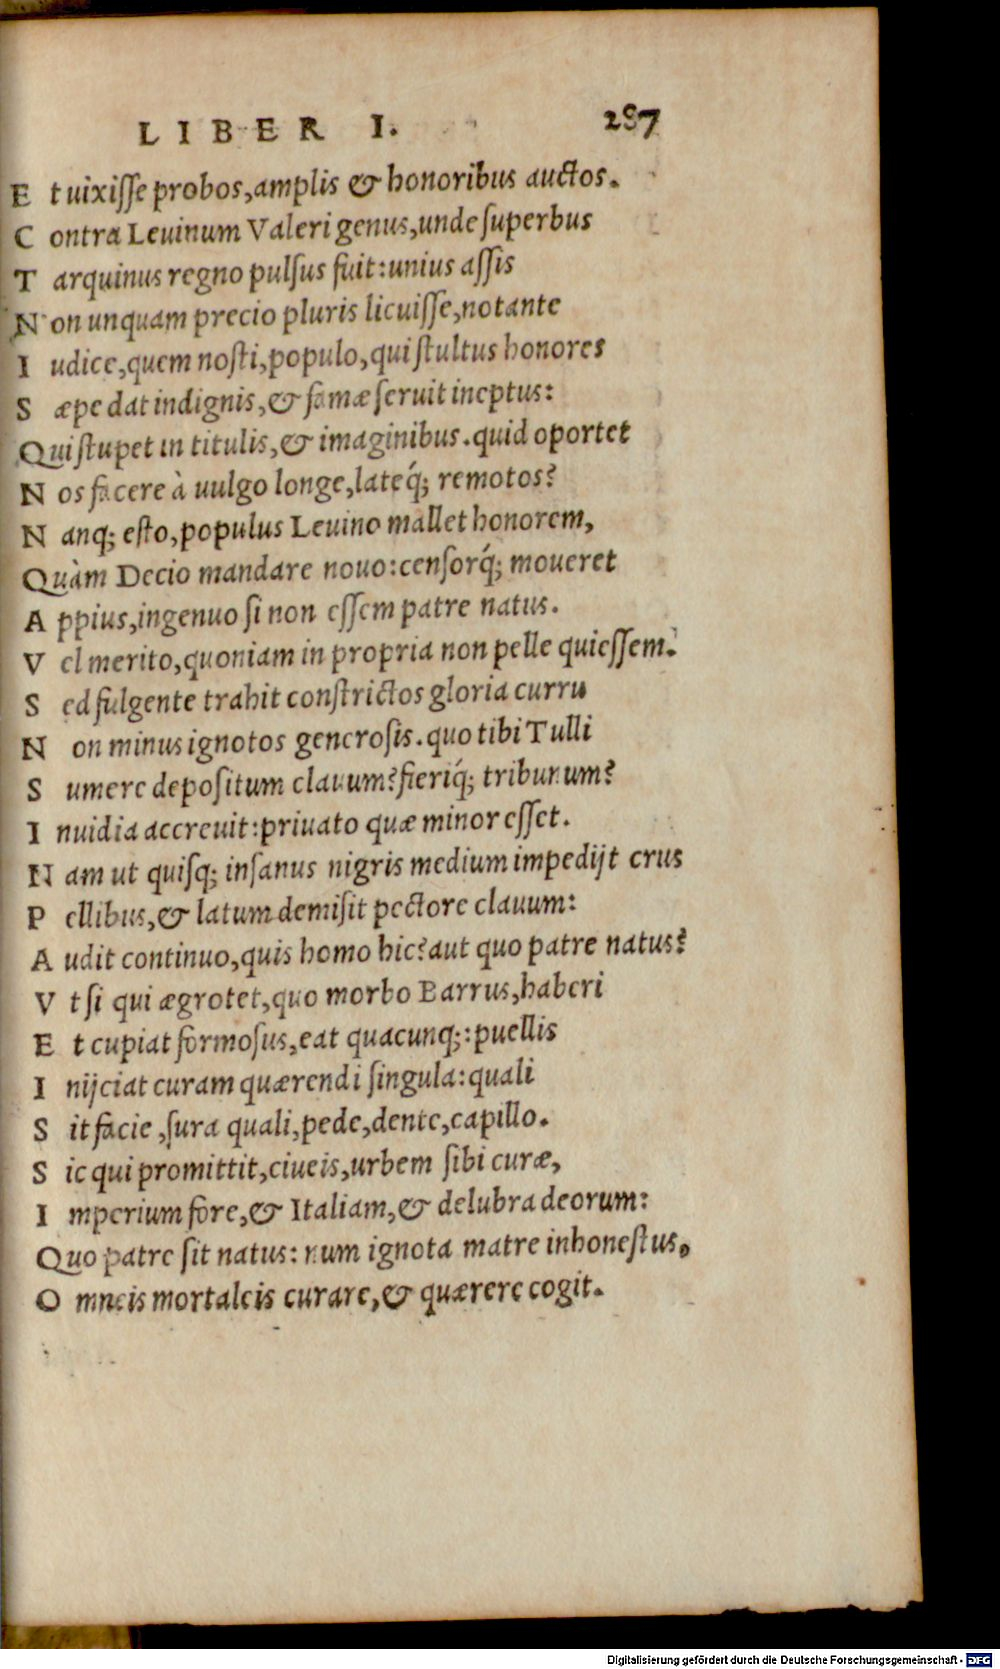 LIBER I. 287
Et uixisse probos, amplis & honoribus auctos.
Contra Leuinum Valeri genus, unde superbus
Tarquinus regno pulsus fuit: unius assis
Non unquam precio pluris licuisse, notante
Iudice, quem nosti, populo, qui stultus honores
Sæpe dat indignis, & famæ seruit ineptus:
Qui stupet in titulis, & imaginibus. quid oportet
Nos facere à uulgo longe, lateq́; remotos?
Nanq; esto, populus Leuino mallet honorem,
Quàm Decio mandare nouo: censorq́; moueret
Appius, ingenuo si non essem patre natus.
Vel merito, quoniam in propria non pelle quiessem.
Sed fulgente trahit constrictos gloria curru
Non minus ignotos generosis. quo tibi Tulli
Sumere depositum clauum? fieriq́; tribunum?
Inuidia accreuit: priuato quæ minor esset.
Nam ut quisq; insanus nigris medium impedijt crus
Pellibus, & latum demisit pectore clauum:
Audit continuo, quis homo hic? aut quo patre natus?
Vt si qui ægrotet, quo morbo Barrus, haberi
Et cupiat formosus, eat quacunq;: puellis
Inijciat curam quærendi singula: quali
Sit facie, sura quali, pede, dente, capillo.
Sic qui promittit, ciueis, urbem sibi curæ,
Imperium fore, & Italiam, & delubra deorum:
Quo patre sit natus: num ignota matre inhonestus,
Omneis mortaleis curare, & quærere cogit.
Digitalisierung gefördert durch die Deutsche Forschungsgemeinschaft - DFG